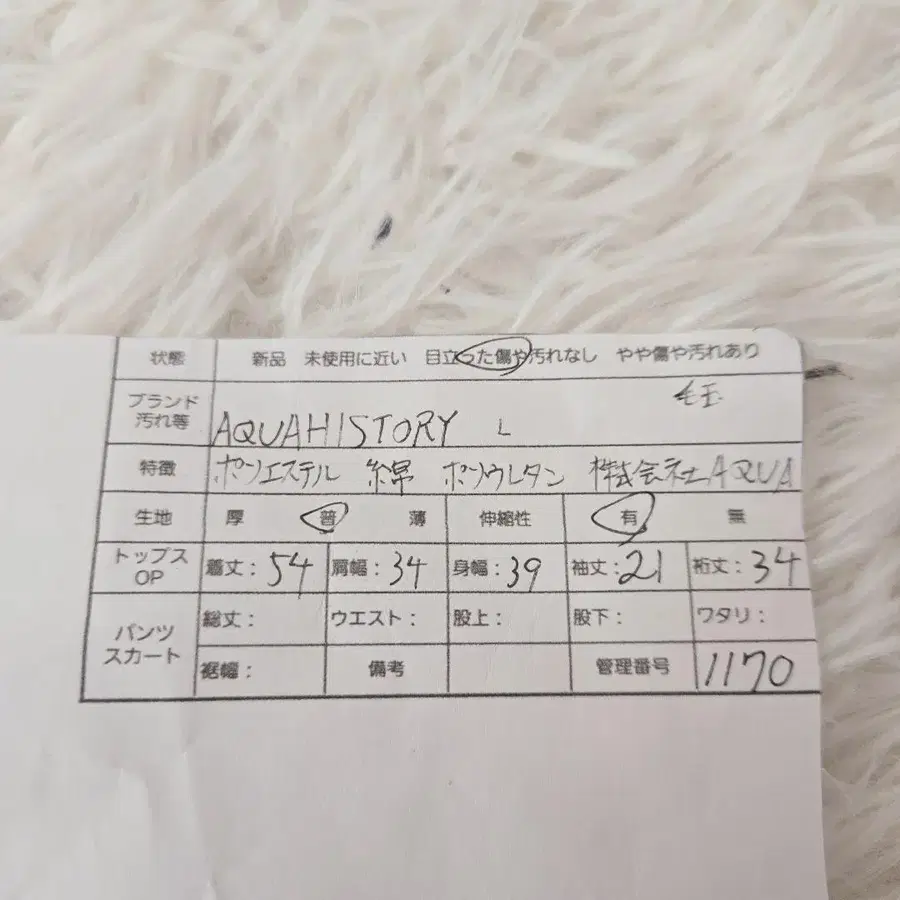 状態 新品 未使用に近い 目立った傷や汚れなし やや傷や汚れあり
ブランド 毛玉
汚れ等 AQUAHISTORY L
特徴 ポリエステル 綿 ポリウレタン 株式会社AQUA
生地 厚 普 薄 伸縮性 有 無
トップス
OP 着丈:54 肩幅:34 身幅:39 袖丈:21 裄丈:34
総丈: ウエスト: 股上: 股下: ワタリ:
パンツ
スカート
裾幅: 備考 管理番号 1170